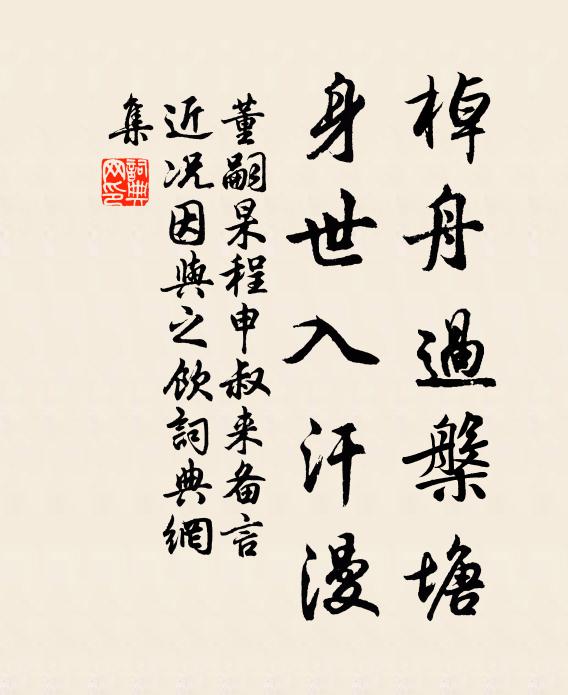 棹舟過槃塘
身世入汗漫
董嗣杲程申叔来备言
近况因與之飲詞典網
集
詞典網印